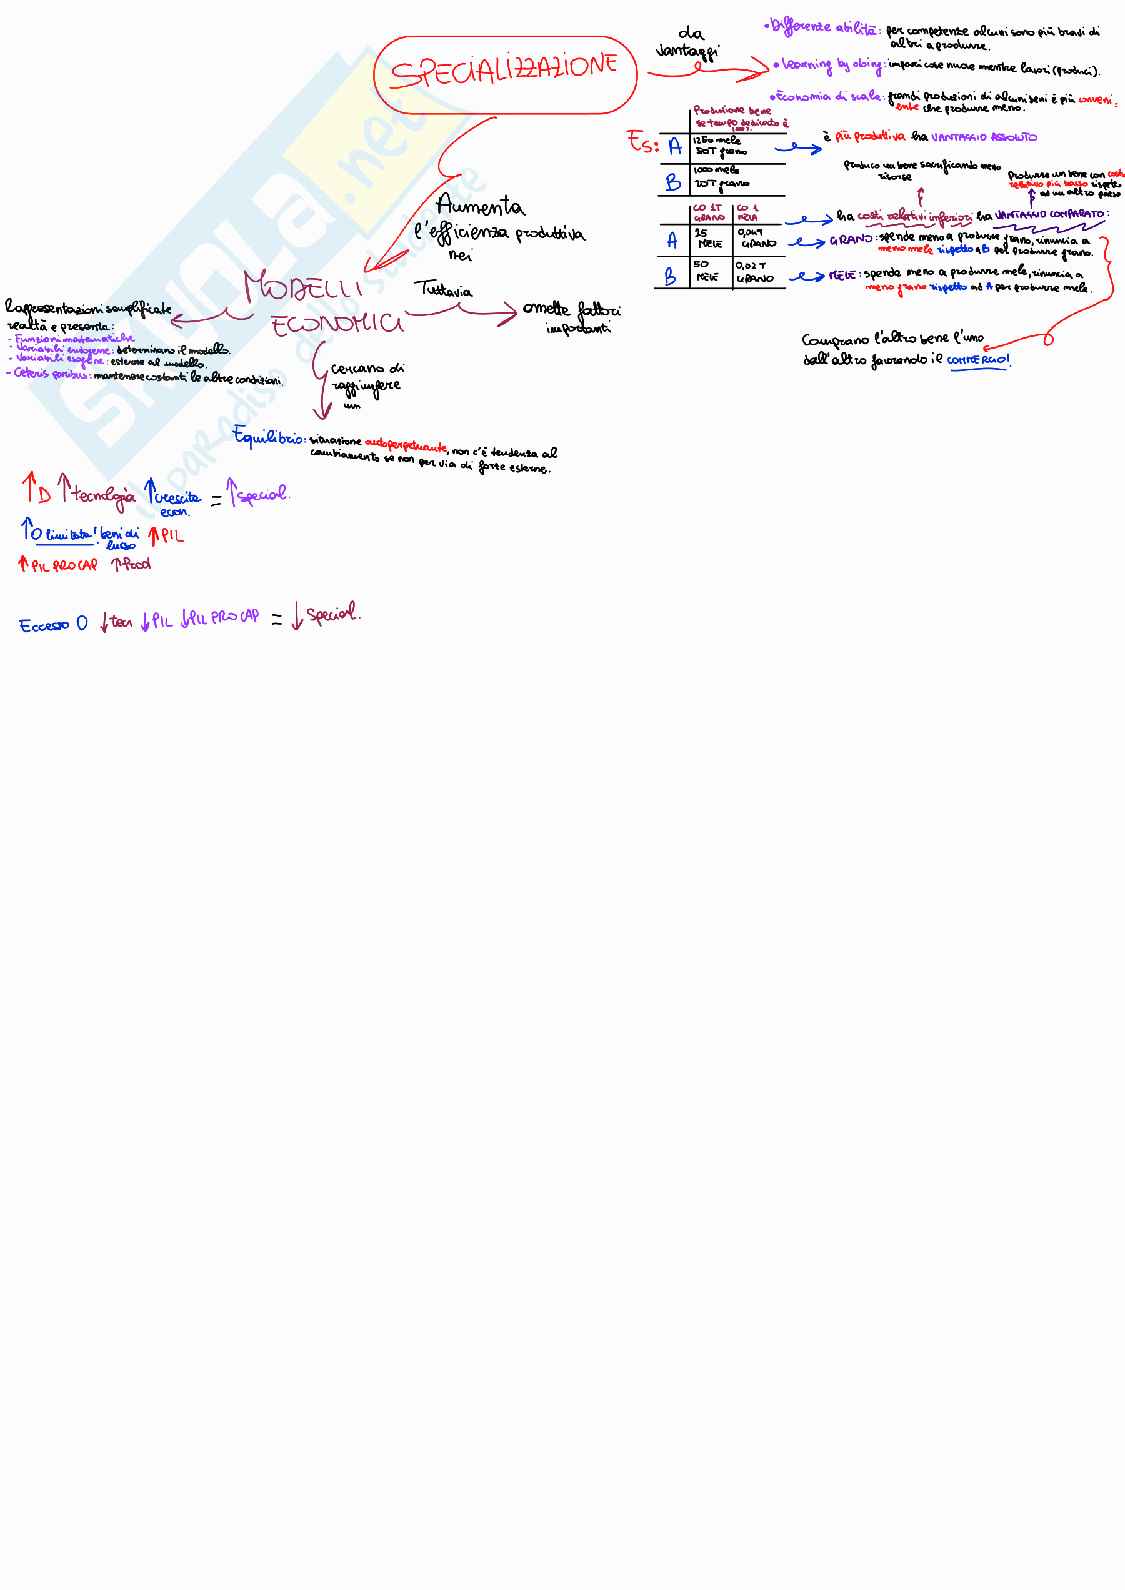 SPECIALIZZAZIONE
da
vantaggi
• Differenze abilità: per competenze alcuni sono più bravi di
altri a produrre.
• Learning by doing: impari cose nuove mentre lavori (produci).
• Economia di scala: grandi produzioni di alcuni beni è più conveni-
ente che produrre meno.
Es:
Produzione bene
se tempo dedicato è
100%
A
1250 mele
50T grano
B
1000 mele
20T grano
è più produttiva ha VANTAGGIO ASSOLUTO
produco un bene sacrificando meno
risorse
Produrre un bene con costo
relativo più basso rispetto
ad un altro paese
CO 1T
GRANO
CO 1
MELA
A
25
MELE
0,04T
GRANO
B
50
MELE
0,02T
GRANO
ha costi relativi inferiori ha VANTAGGIO COMPARATO:
GRANO: spende meno a produrre grano, rinuncia a
meno mele rispetto a B per produrre grano.
MELE: spende meno a produrre mele, rinuncia a
meno grano rispetto ad A per produrre mele.
Comprano l'altro bene l'uno
dall'altro favorendo il COMMERCIO!
Aumenta
l'efficienza produttiva
nei
MODELLI
ECONOMICI
Tuttavia
omette fattori
importanti
Rappresentazioni semplificate
realtà e presenta:
- Funzioni matematiche
- Variabili endogene: determinano il modello.
- Variabili esogene: esterne al modello.
- Ceteris paribus: mantenere costanti le altre condizioni.
cercano di
raggiungere
un
Equilibrio: situazione autoperpetuante, non c'è tendenza al
cambiamento se non per via di forze esterne.
↑D ↑tecnologia ↑crescita = ↑special.
econ.
↑O limitata! beni di ↑PIL
lusso
↑PIL PRO CAP ↑Prod
Eccesso O ↓tecn ↓PIL ↓PIL PRO CAP = ↓special.
SKUOLA.net
il paradiso dello studente